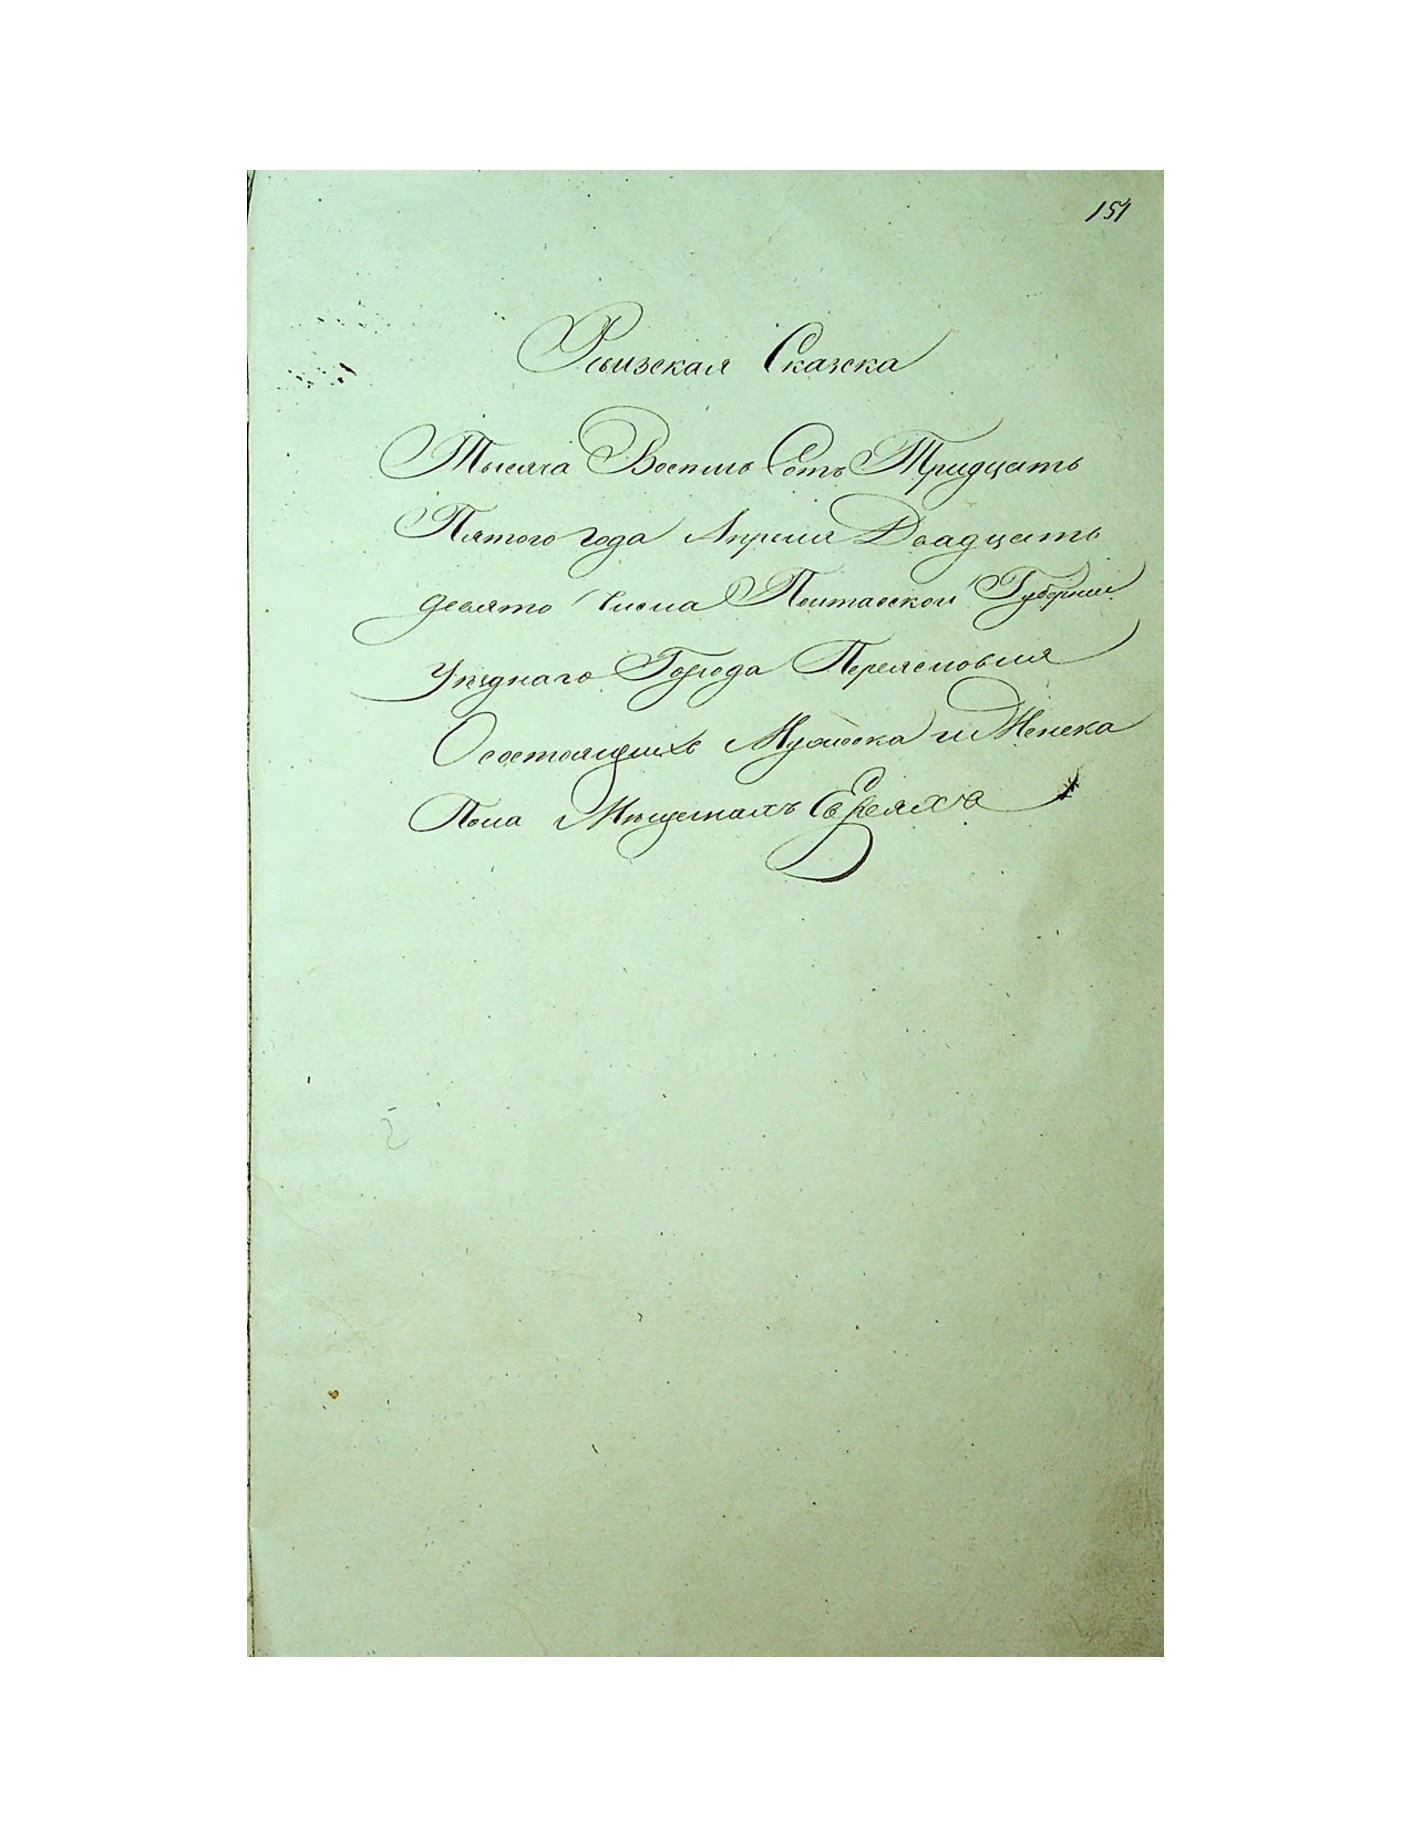 151
Ревизская Сказка
Тысяча Восемь Сотъ Тридцать
Пятого года Апреля Двадцать
девято Числа Полтавской Губернии
Уѣзднаго Города Переяславля
О состоящихъ Мужеска и Женска
Пола Мѣщанахъ Евреяхъ